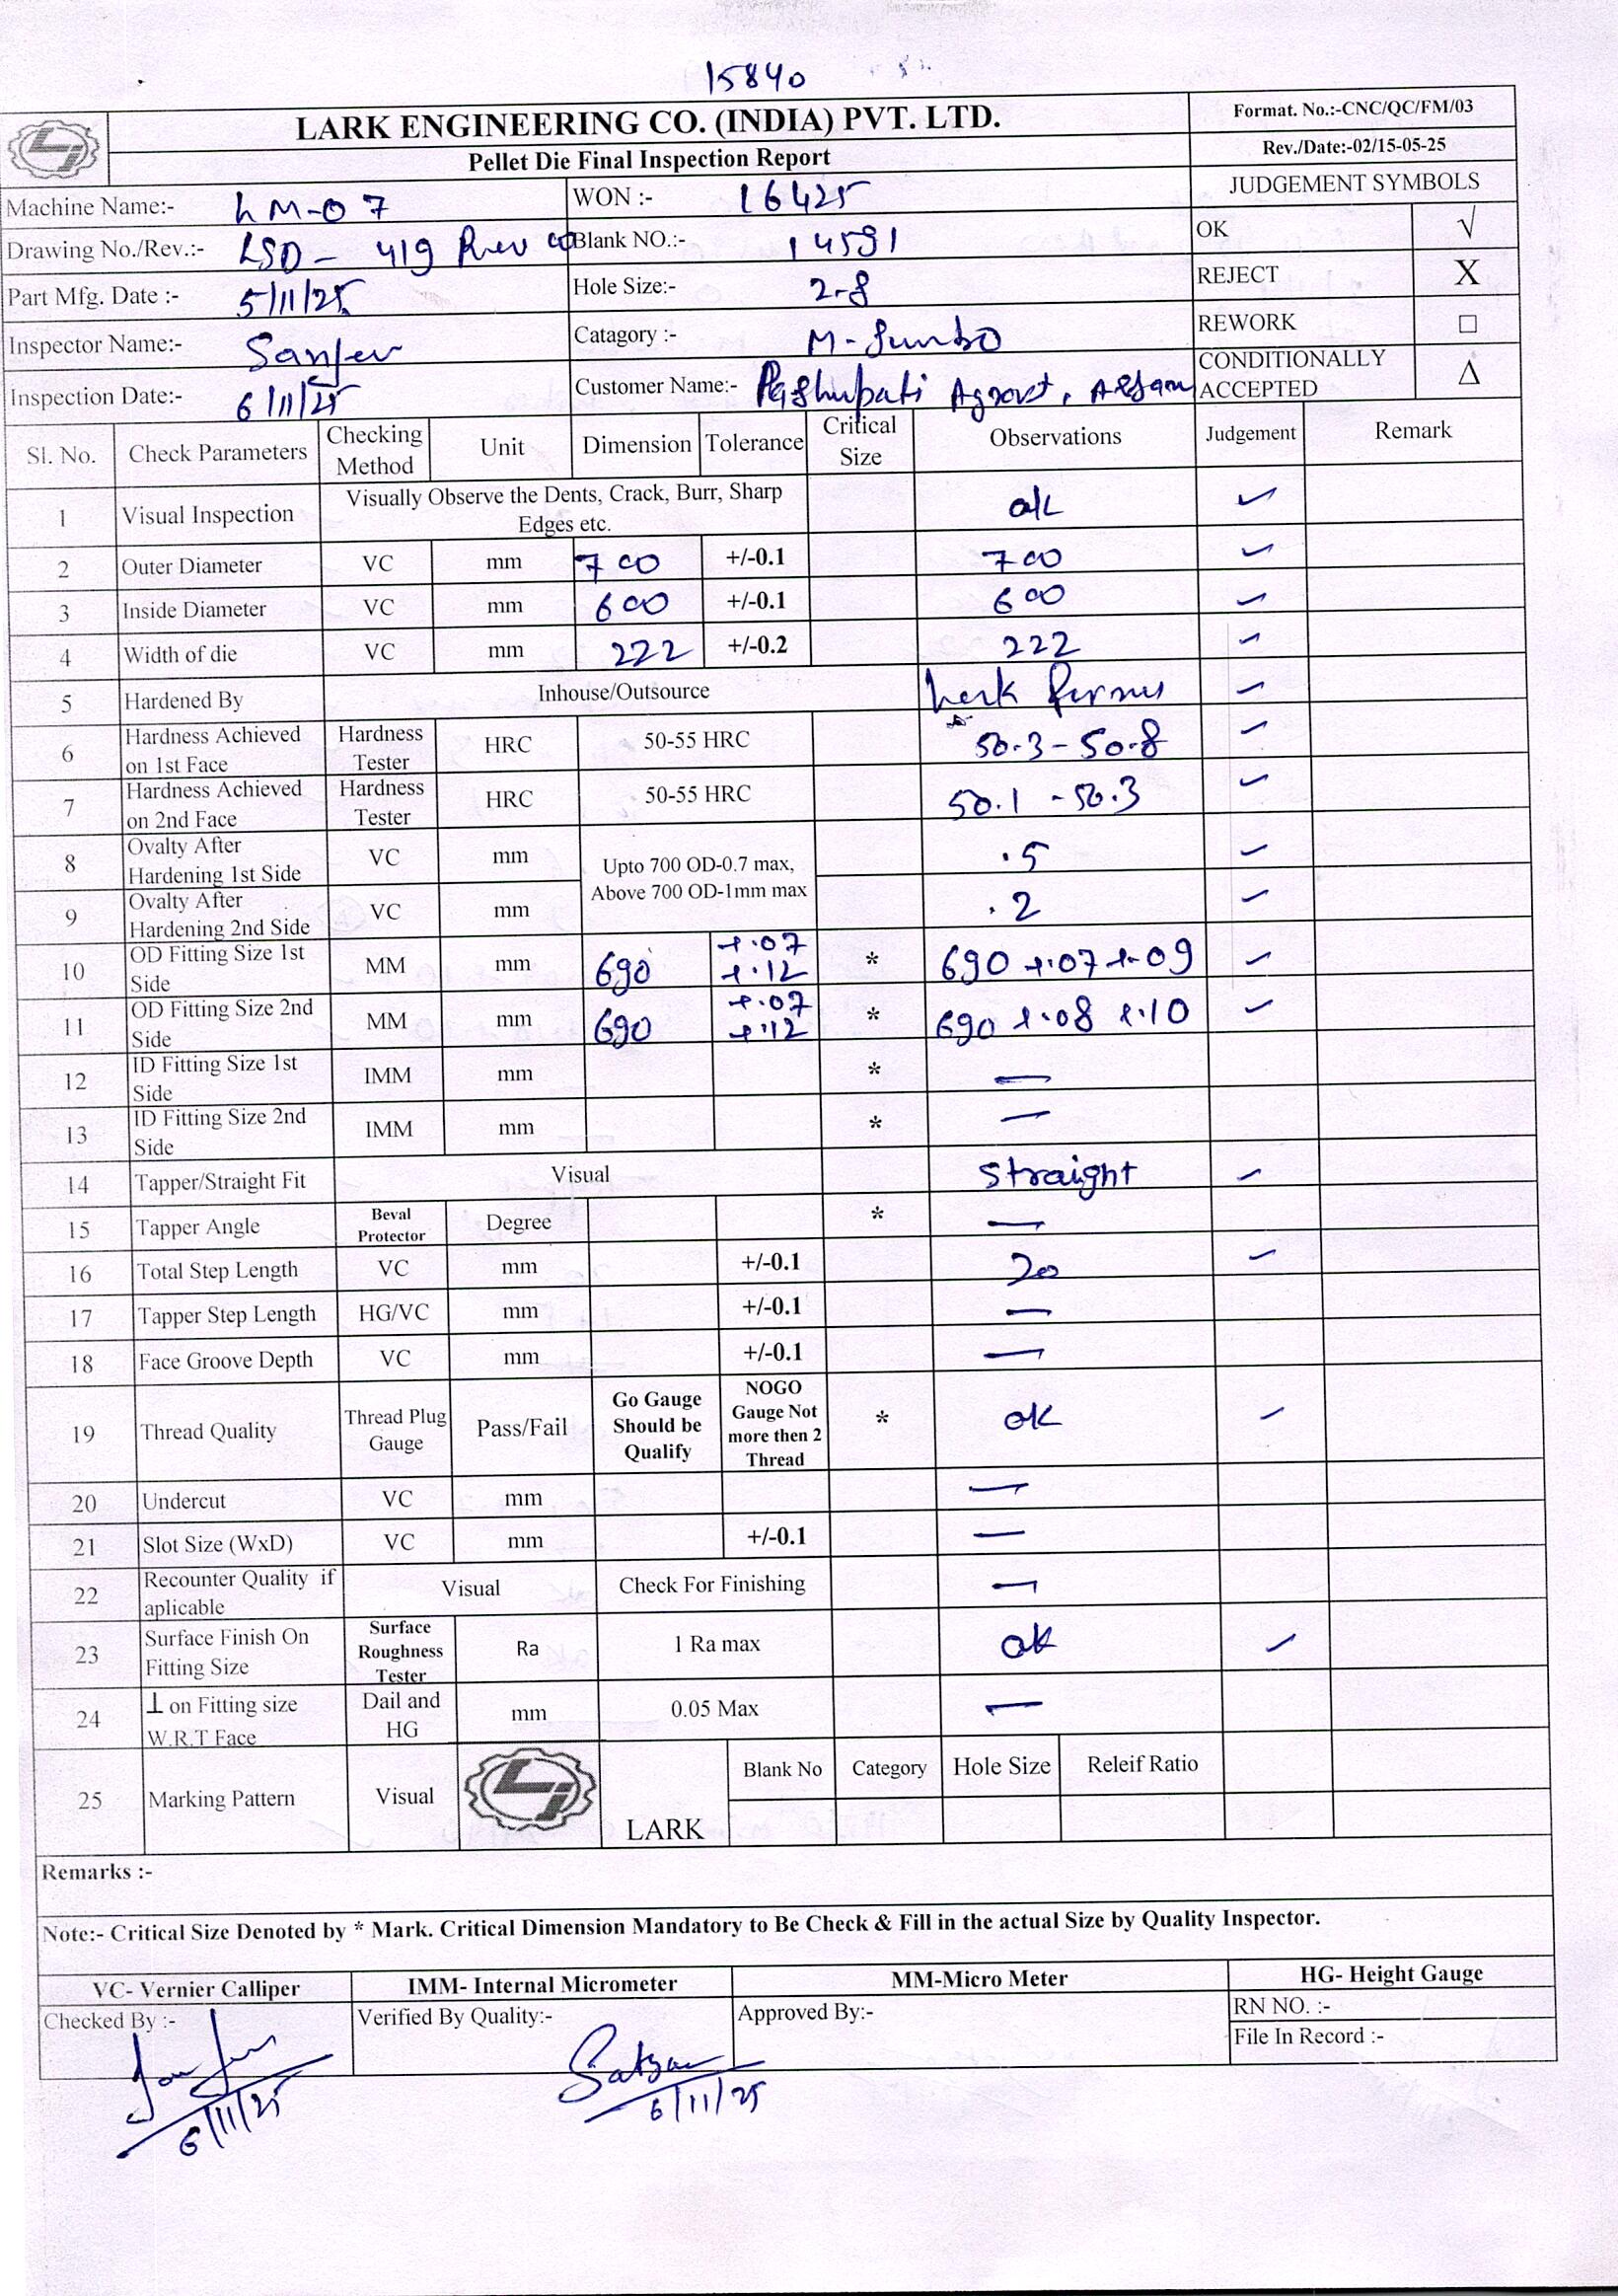 15840
LARK ENGINEERING CO. (INDIA) PVT. LTD.
Format. No.:-CNC/QC/FM/03
Pellet Die Final Inspection Report
Rev./Date:-02/15-05-25
Machine Name:- LM-07 WON :- 16425 JUDGEMENT SYMBOLS
Drawing No./Rev.:- LSD - 419 Rev 00 Blank NO.:- 14591 OK √
Part Mfg. Date :- 5/11/25 Hole Size:- 2-8 REJECT X
Inspector Name:- Sanjeev Catagory :- M-Jumbo REWORK □
Inspection Date:- 6/11/25 Customer Name:- Pashupati Agrovet, Assam CONDITIONALLY ACCEPTED Δ
Sl. No. Check Parameters Checking Method Unit Dimension Tolerance Critical Size Observations Judgement Remark
1 Visual Inspection Visually Observe the Dents, Crack, Burr, Sharp Edges etc. ok ✓
2 Outer Diameter VC mm 700 +/-0.1 700 ✓
3 Inside Diameter VC mm 600 +/-0.1 600 ✓
4 Width of die VC mm 222 +/-0.2 222 ✓
5 Hardened By Inhouse/Outsource Lark ✓
6 Hardness Achieved on 1st Face Hardness Tester HRC 50-55 HRC 50.3-50.8 ✓
7 Hardness Achieved on 2nd Face Hardness Tester HRC 50-55 HRC 50.1 -50.3 ✓
8 Ovalty After Hardening 1st Side VC mm Upto 700 OD-0.7 max, Above 700 OD-1mm max .5 ✓
9 Ovalty After Hardening 2nd Side VC mm .2 ✓
10 OD Fitting Size 1st Side MM mm 690 +.07 +.12 * 690 +.07 +.09 ✓
11 OD Fitting Size 2nd Side MM mm 690 +.07 +.12 * 690 +.08 +.10 ✓
12 ID Fitting Size 1st Side IMM mm * —
13 ID Fitting Size 2nd Side IMM mm * —
14 Tapper/Straight Fit Visual Straight ✓
15 Tapper Angle Beval Protector Degree * —
16 Total Step Length VC mm +/-0.1 20 ✓
17 Tapper Step Length HG/VC mm +/-0.1 —
18 Face Groove Depth VC mm +/-0.1 —
19 Thread Quality Thread Plug Gauge Pass/Fail Go Gauge Should be Qualify NOGO Gauge Not more then 2 Thread * ok ✓
20 Undercut VC mm —
21 Slot Size (WxD) VC mm +/-0.1 —
22 Recounter Quality if aplicable Visual Check For Finishing —
23 Surface Finish On Fitting Size Surface Roughness Tester Ra 1 Ra max ok ✓
24 ⊥ on Fitting size W.R.T Face Dail and HG mm 0.05 Max —
25 Marking Pattern Visual LARK Blank No Category Hole Size Releif Ratio
Remarks :-
Note:- Critical Size Denoted by * Mark. Critical Dimension Mandatory to Be Check & Fill in the actual Size by Quality Inspector.
VC- Vernier Calliper IMM- Internal Micrometer MM-Micro Meter HG- Height Gauge
Checked By :- Verified By Quality:- Approved By:- RN NO. :-
File In Record :-
6/11/25 6/11/25